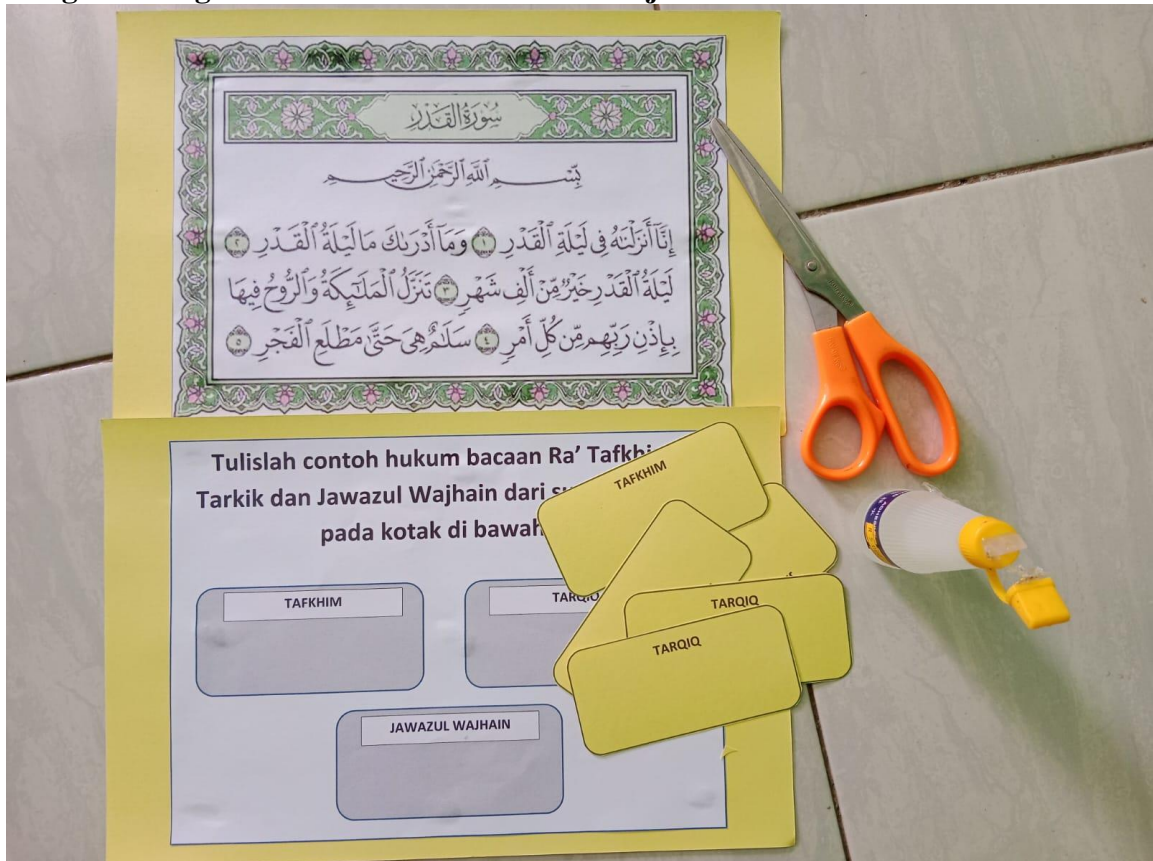 سُورَةُ القَدْرِ
بِسْمِ ٱللَّهِ ٱلرَّحْمَٰنِ ٱلرَّحِيمِ
إِنَّآ أَنزَلْنَٰهُ فِى لَيْلَةِ ٱلْقَدْرِ ١ وَمَآ أَدْرَىٰكَ مَا لَيْلَةُ ٱلْقَدْرِ ٢
لَيْلَةُ ٱلْقَدْرِ خَيْرٌ مِّنْ أَلْفِ شَهْرٍ ٣ تَنَزَّلُ ٱلْمَلَٰٓئِكَةُ وَٱلرُّوحُ فِيهَا
بِإِذْنِ رَبِّهِم مِّن كُلِّ أَمْرٍ ٤ سَلَٰمٌ هِىَ حَتَّىٰ مَطْلَعِ ٱلْفَجْرِ ٥
Tulislah contoh hukum bacaan Ra'
Tarkik dan Jawazul Wajhain dari
pada kotak di bawah
TAFKHIM
TAFKHIM
JAWAZUL WAJHAIN
TARQIQ
TARQIQ